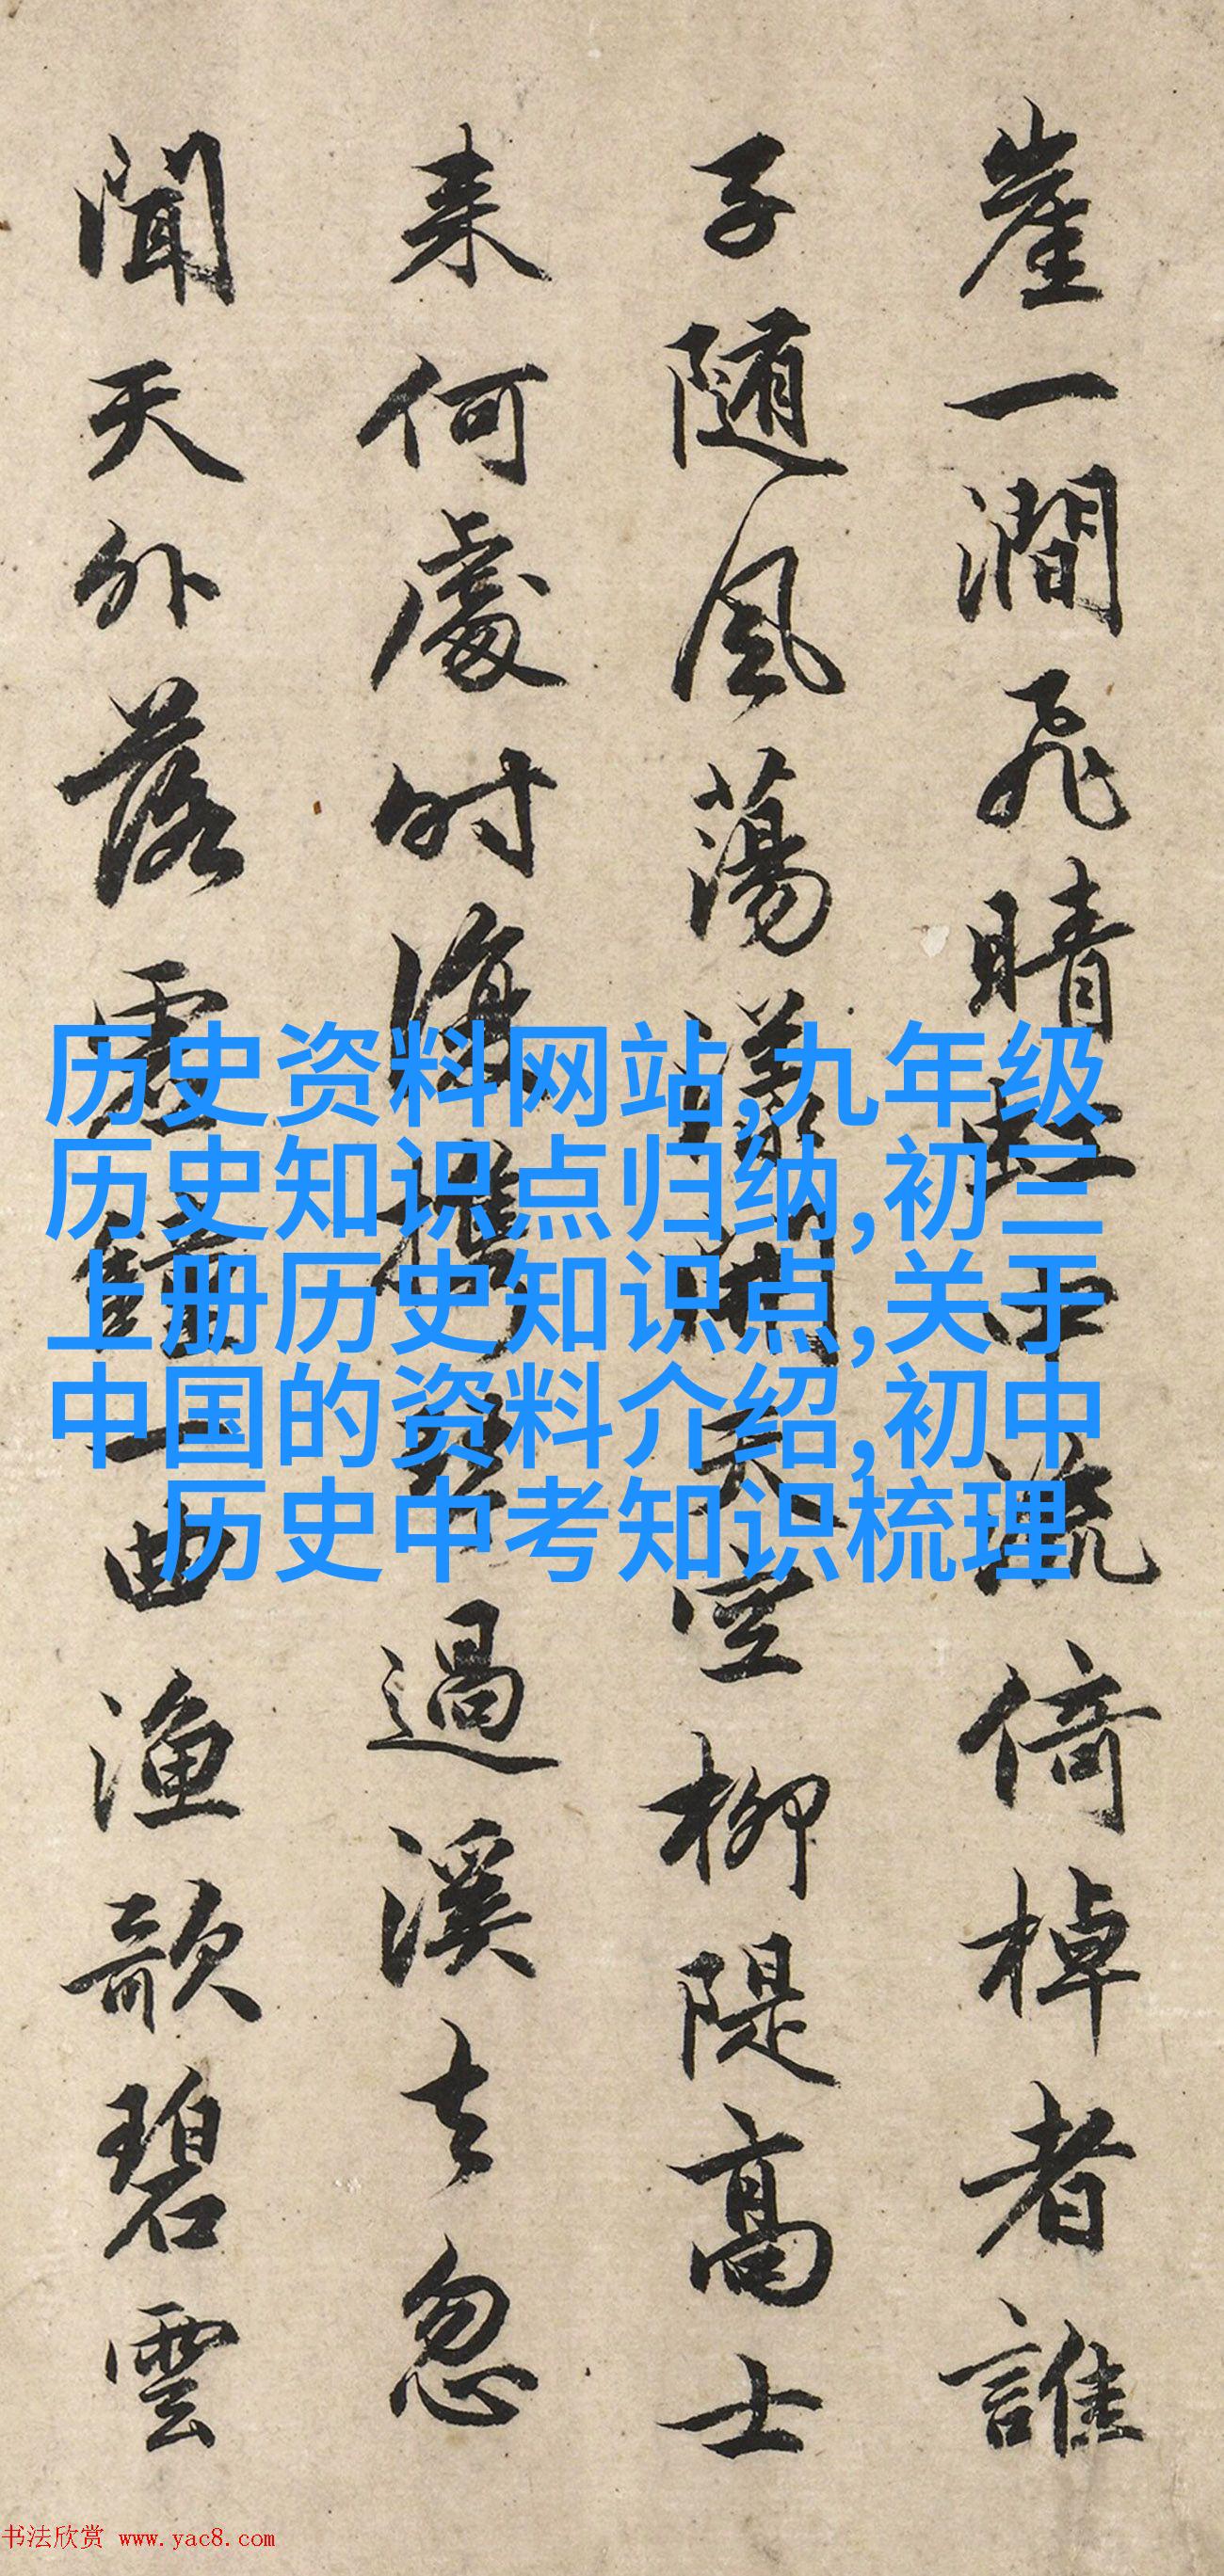 崖一澗飛晴虹中流倚棹者誰
子随風蕩漾天空柳隄高士
来何處时復携琴過溪去忽
聞天外落鐘一曲漁歌碧雲
历史资料网站,九年级
历史知识点归纳,初三
上册历史知识点,关于
中国的资料介绍,初中
历史中考知识梳理
书法欣赏 www.yac8.com